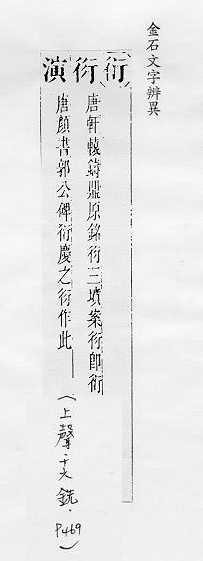 金石文字辨異
衍衍演
唐軒轅鑄鼎原銘衍三墳案衍即衍
唐顏書郭公碑衍慶之衍作此
(上聲·十六銑·P469)